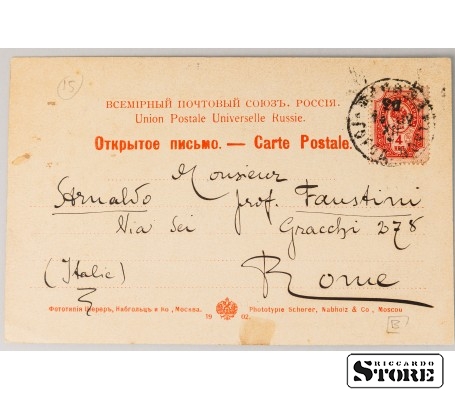 15
ВСЕМІРНЫЙ ПОЧТОВЫЙ СОЮЗЪ. РОССІЯ.
Union Postale Universelle Russie.
Открытое письмо. — Carte Postale.
4
Monsieur
Arnaldo prof. Faustini
Via Sei Gracchi 278
(Italie) Rome
Фототипія Шереръ, Набгольцъ и Ко, Москва. 1902. Phototypie Scherer, Nabholz & Co, Moscou
B
RICCARDO
STORE